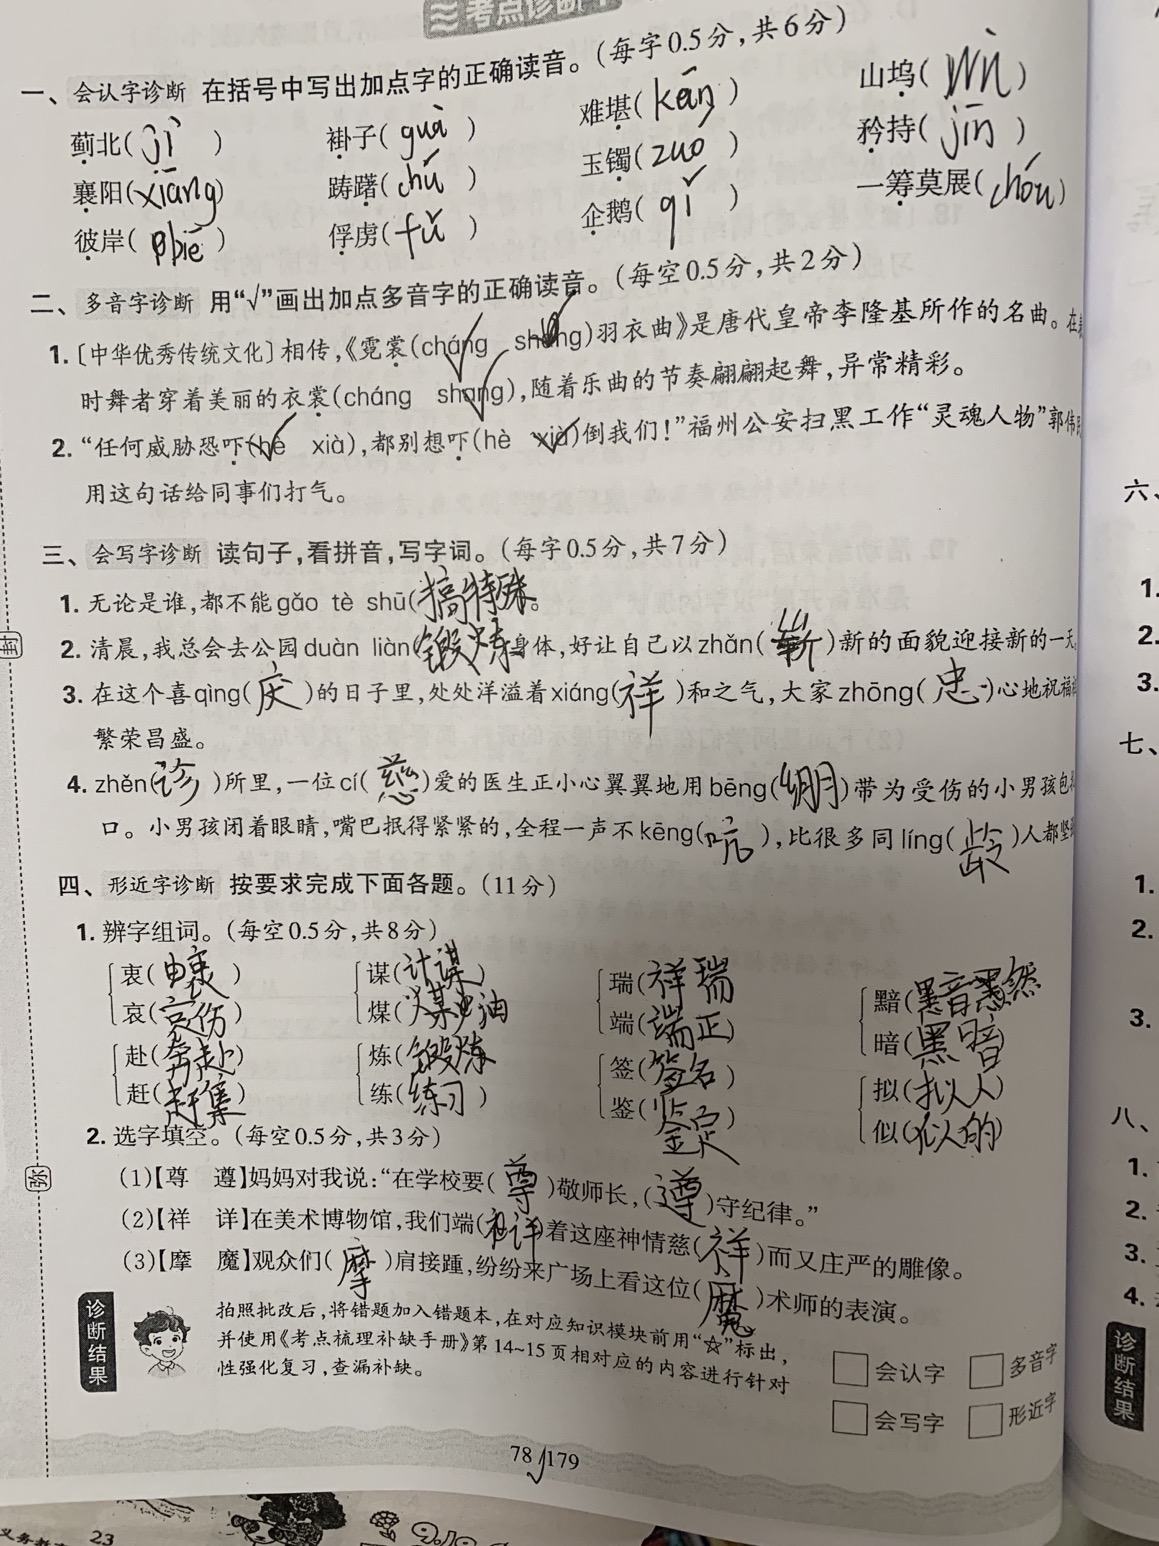 考点诊断
一、会认字诊断 在括号中写出加点字的正确读音。(每字0.5分,共6分)
蓟北(jì) 褂子(guà) 难堪(kān) 山坞(wù)
襄阳(xiāng) 踌躇(chú) 玉镯(zuo) 矜持(jīn)
彼岸(bǐ) 俘虏(fú) 企鹅(qǐ) 一筹莫展(chóu)
二、多音字诊断 用“√”画出加点多音字的正确读音。(每空0.5分,共2分)
1.〔中华优秀传统文化〕相传,《霓裳(cháng√ shang)羽衣曲》是唐代皇帝李隆基所作的名曲。在
时舞者穿着美丽的衣裳(cháng shang√),随着乐曲的节奏翩翩起舞,异常精彩。
2.“任何威胁恐吓(hè√ xià),都别想吓(hè xià√)倒我们!”福州公安扫黑工作“灵魂人物”郭伟
用这句话给同事们打气。
三、会写字诊断 读句子,看拼音,写字词。(每字0.5分,共7分)
1. 无论是谁,都不能gǎo tè shū(搞特殊。
2. 清晨,我总会去公园duàn liàn(锻炼)身体,好让自己以zhǎn(崭)新的面貌迎接新的一天
3. 在这个喜qìng(庆)的日子里,处处洋溢着xiáng(祥)和之气,大家zhōng(忠)心地祝福
繁荣昌盛。
4. zhěn(诊)所里,一位cí(慈)爱的医生正小心翼翼地用bēng(绷)带为受伤的小男孩包
口。小男孩闭着眼睛,嘴巴抿得紧紧的,全程一声不kēng(吭),比很多同líng(龄)人都坚
四、形近字诊断 按要求完成下面各题。(11分)
1. 辨字组词。(每空0.5分,共8分)
衷(由衷) 谋(计谋) 瑞(祥瑞) 黯(黯然
哀(哀伤) 煤(煤油 端(端正) 暗(黑暗)
赴(奔赴) 炼(锻炼 签(签名) 拟(拟人)
赶(赶集) 练(练习) 鉴(鉴定) 似(似的)
2. 选字填空。(每空0.5分,共3分)
(1)【尊 遵】妈妈对我说:“在学校要(尊)敬师长,(遵)守纪律。”
(2)【祥 详】在美术博物馆,我们端(详)着这座神情慈(祥)而又庄严的雕像。
(3)【摩 魔】观众们(摩)肩接踵,纷纷来广场上看这位(魔)术师的表演。
诊断结果
拍照批改后,将错题加入错题本,在对应知识模块前用“☆”标出,
并使用《考点梳理补缺手册》第14~15页相对应的内容进行针对
性强化复习,查漏补缺。
会认字 多音字
会写字 形近字
78 179
23
六、
1.
2.
3.
七、
1.
2.
3.
八、
1.
2.
3.
4.
诊断结果